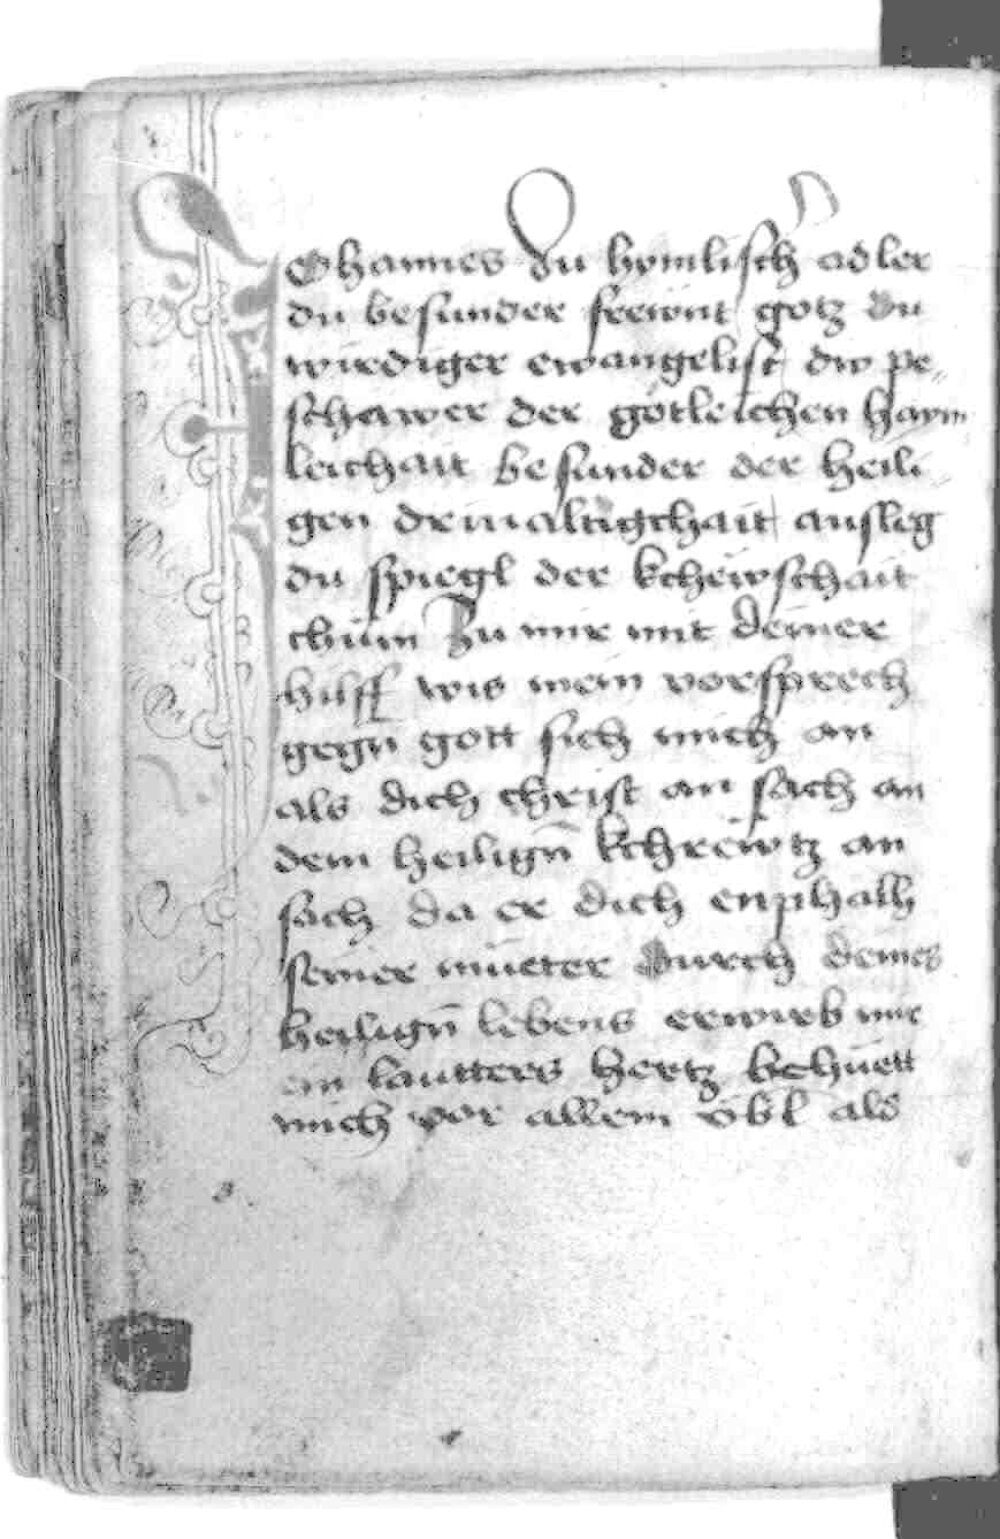 IOhannes du hymlisch adler
du besunder frewnt gotz du
wirdiger ewangelist dw pe„
schawer der götleichen haym„
leichait besunder der heili„
gen driualtigchait ausleg
du spiegl der kchewschait
chüm zu mir mit deiner
hilff wis mein vorsprech
gegn̄ gott sich mich an
als dich christ an sach an
dem heilign̄ kchrewtz an
sach da er dich enphalh
seiner mueter durch deines
heilign̄ lebens erwirb mir
ein lautters hertz behuett
mich vor allem vbl als